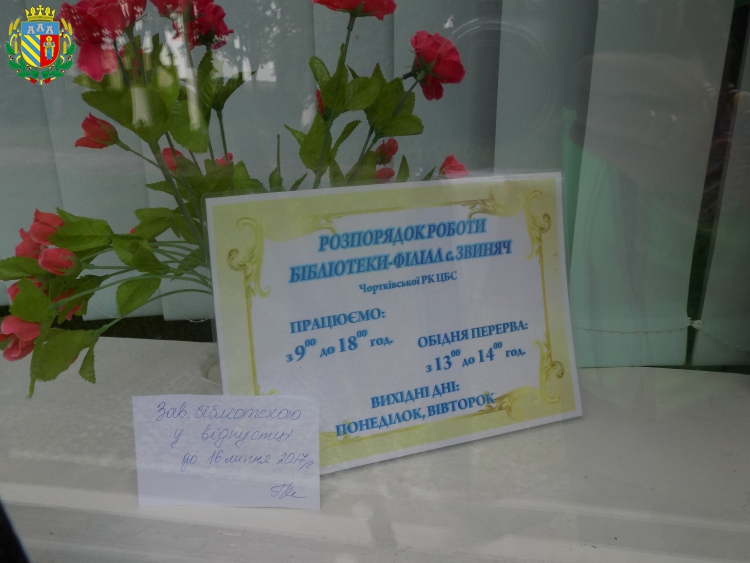 РОЗПОРЯДОК РОБОТИ
БІБЛІОТЕКИ-ФІЛІАЛ с. ЗВИНЯЧ
Чортківської РК ЦБС
ПРАЦЮЄМО:
з 9⁰⁰ до 18⁰⁰ год.
ОБІДНЯ ПЕРЕРВА:
з 13⁰⁰ до 14⁰⁰ год.
ВИХІДНІ ДНІ:
ПОНЕДІЛОК, ВІВТОРОК
Зав. бібліотекою
у відпустці
до 16 липня 2017р